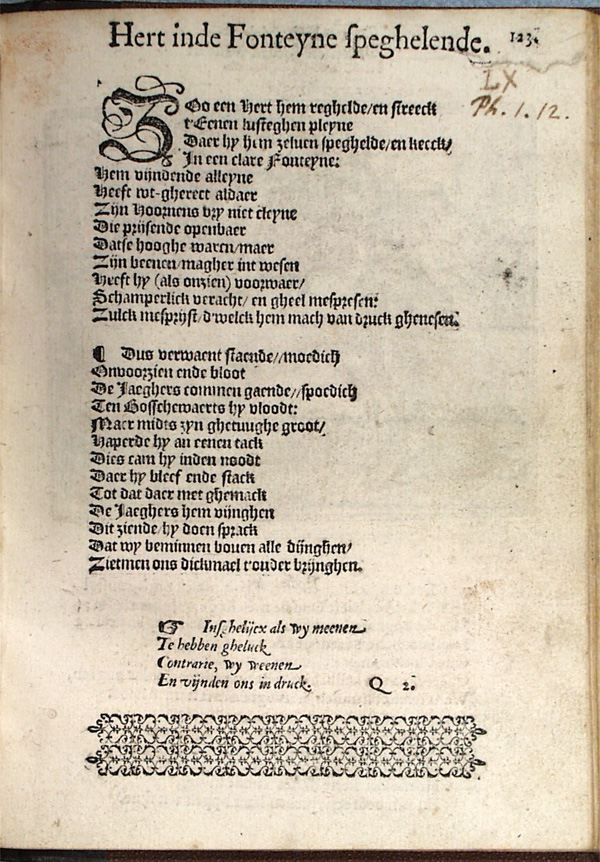 Hert inde Fonteyne speghelende. 123.
LX
Ph. 1. 12.
ZOo een Hert hem reghelde/en streeck
t'Eenen lusteghen pleyne
Daer hy hem zeluen speghelde/en keeck/
In een clare Fonteyne:
Hem vijndende alleyne
Heeft wt-gherect aldaer
Zijn Hoornens vry niet cleyne
Die prijsende openbaer
Datse hooghe waren/maer
Zijn beenen/magher int wesen
Heeft hy (als onzien) voorwaer/
Schamperlick veracht/ en gheel mespresen:
Zulck mesprijst/d'welck hem mach van druck ghenesen.
¶ Dus verwaent staende//moedich
Onvoorzien ende bloot
De Jaeghers commen gaende//spoedich
Ten Bosschewaerts hy vloodt:
Maer midts zyn ghetuughe groot/
Haperde hy an eenen tack
Dies cam hy inden noodt
Daer hy bleef ende stack
Tot dat daer met ghemack
De Jaeghers hem vijnghen
Dit ziende/hy doen sprack
Dat wy beminnen bouen alle dijnghen/
Zietmen ons dickmael t'onder brijnghen.
☞ Inſghelijcx als wy meenen
Te hebben gheluck
Contrarie, wy weenen
En vijnden ons in druck. Q 2.